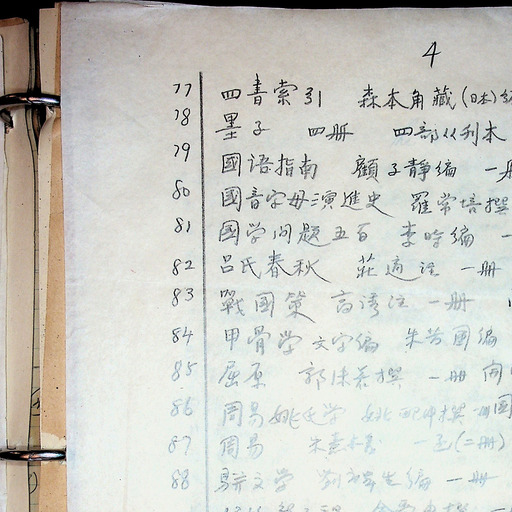 4
77 四書索引 森本角藏(日本)編
78 墨子 四册 四部丛刊本
79 國语指南 顧子靜編 一册
80 國音字母演進史 羅常培撰
81 國学问题五百 李時編 一
82 吕氏春秋 莊適注 一册
83 戰國策 高诱注 一册
84 甲骨学文字编 朱芳圃编
85 屈原 郭沫若撰 一册 開
86 周易姚氏学 姚配中撰 一册 國
87 周易 朱熹本義 一函(二册)
88 駢文学 劉麟生编 一册